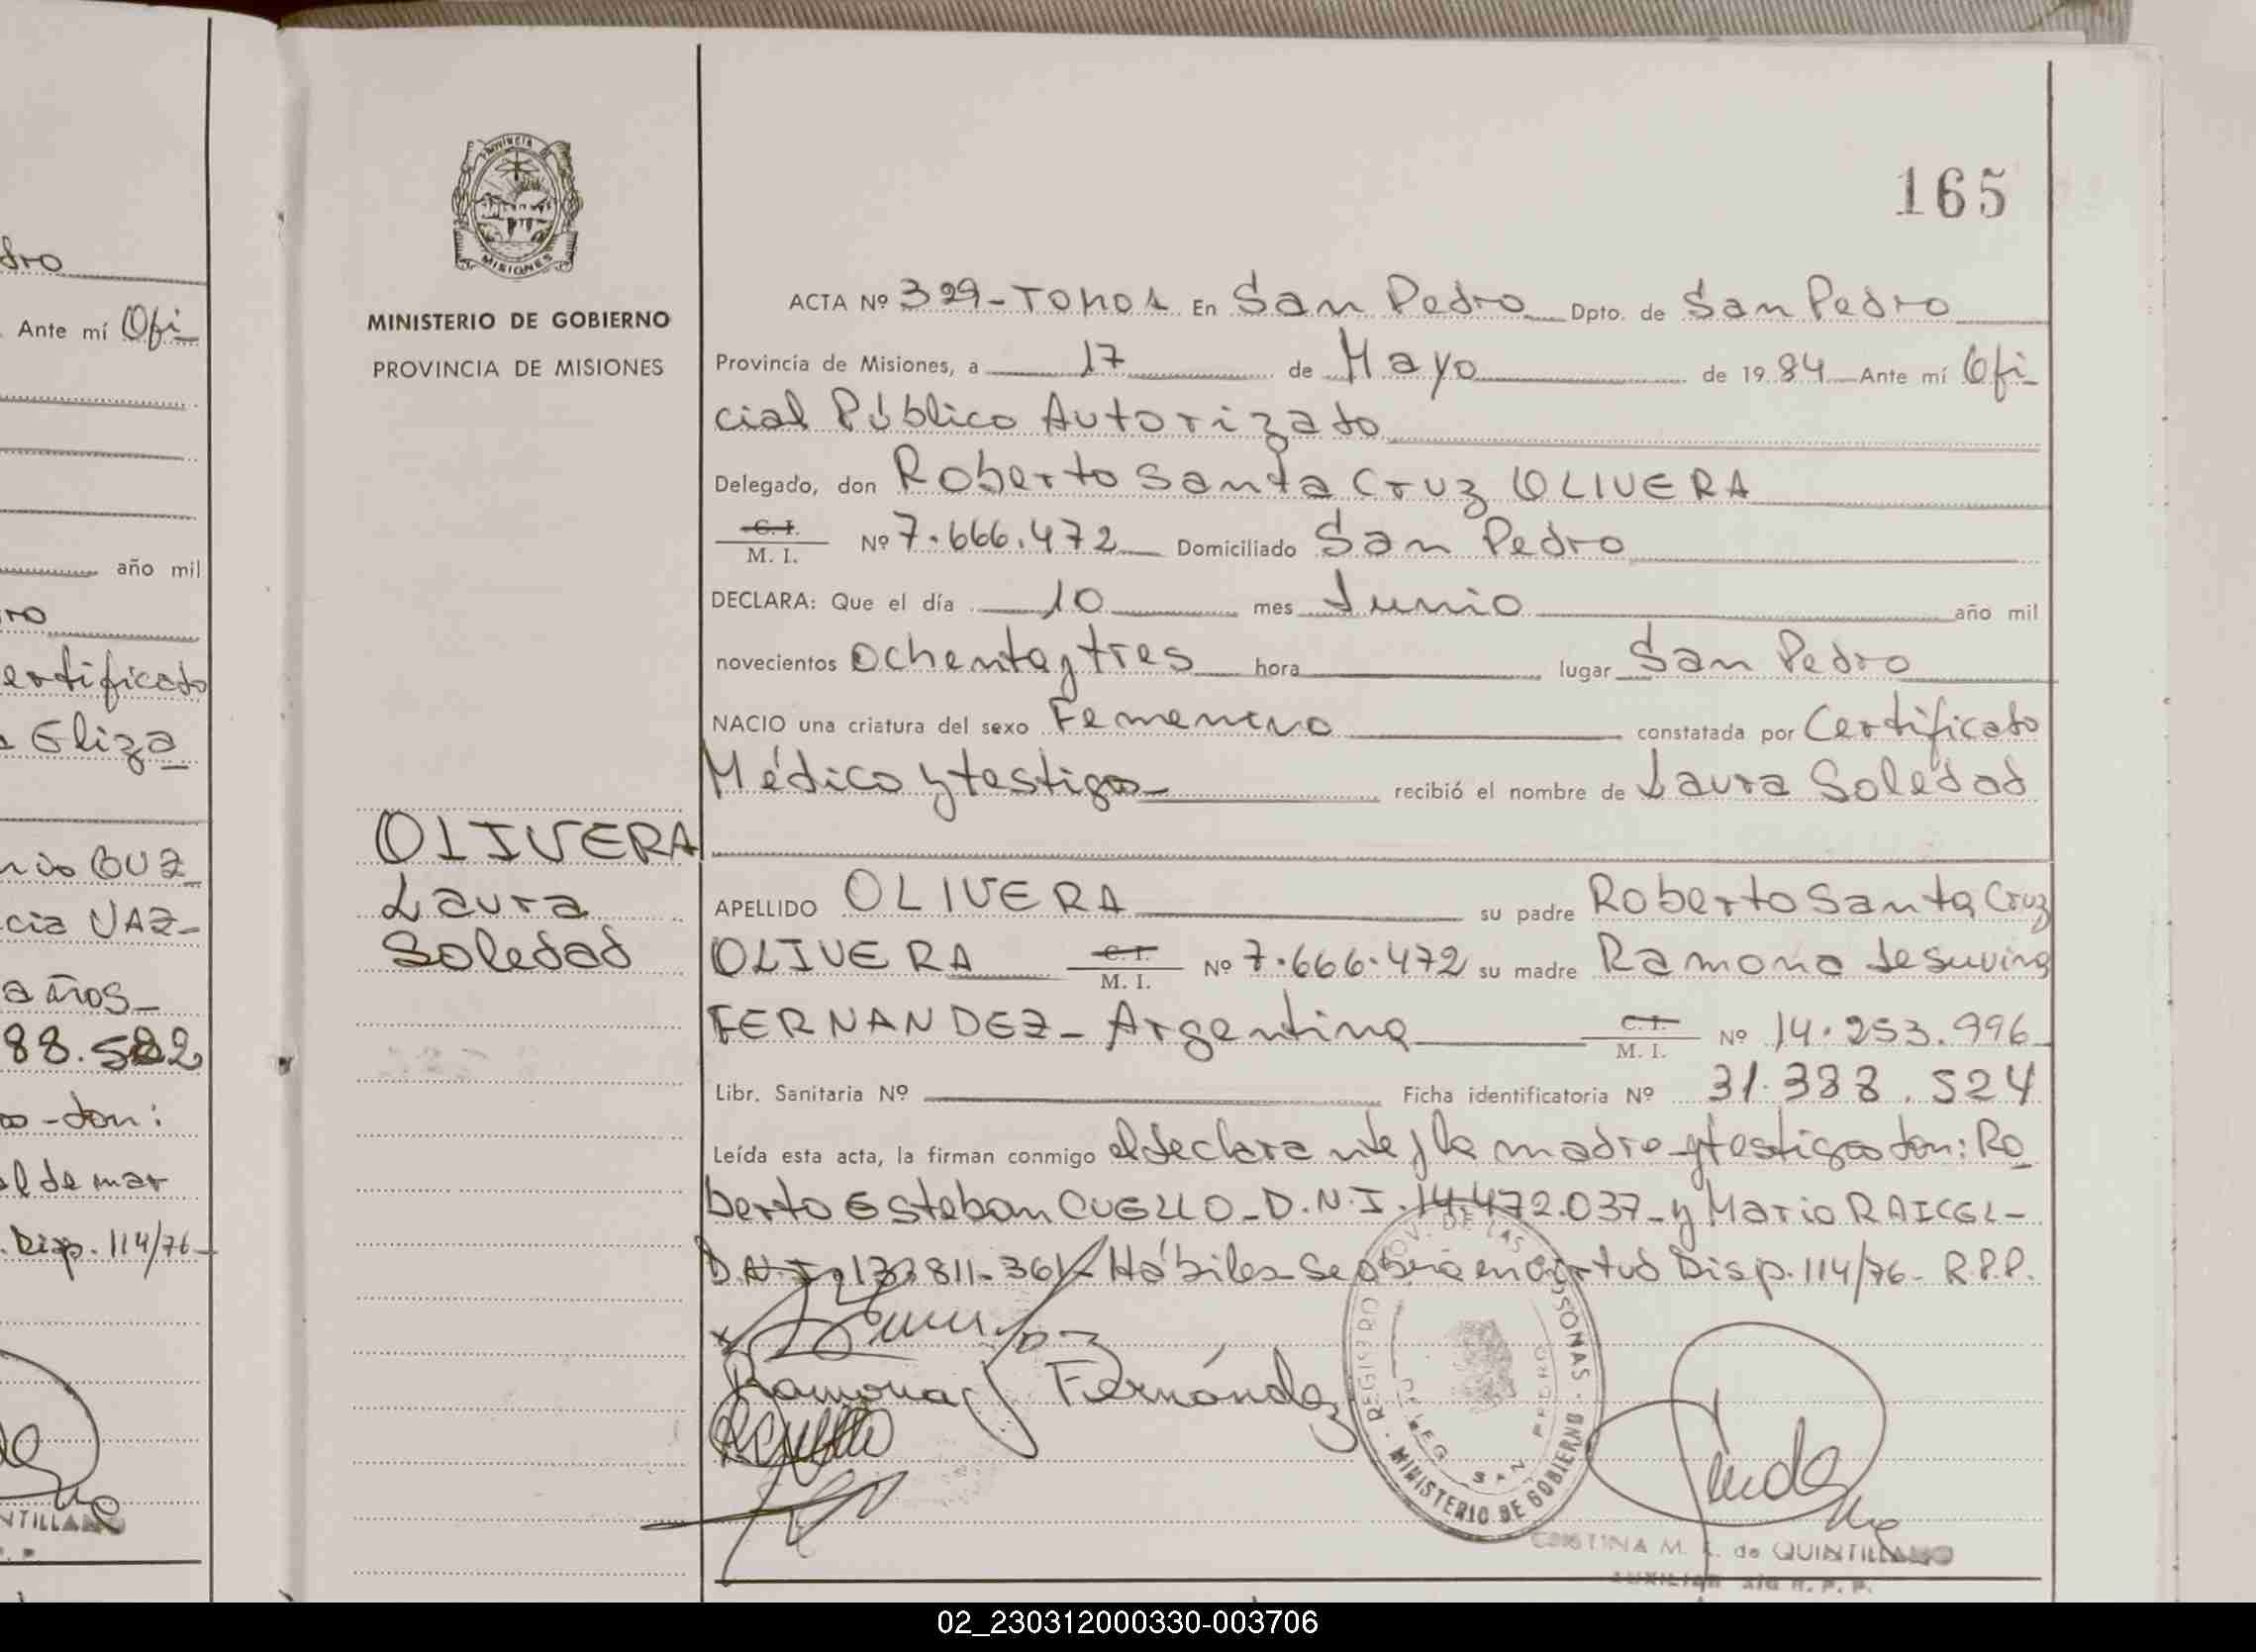 dro
Ante mí Ofi
año mil
ro
ertificado
Eliza
GUZ
cia VAZ-
años-
88.582
-don:
al de mar
Disp. 114/76-
NTILLANO
PROVINCIA DE
MISIONES
MINISTERIO DE GOBIERNO
PROVINCIA DE MISIONES
OLIVERA
Laura
Soledad
165
ACTA Nº 329-TOMO1 En San Pedro Dpto. de San Pedro
Provincia de Misiones, a 17 de Mayo de 1984 Ante mí Ofi
cial Público Autorizado
Delegado, don Roberto Santa Cruz OLIVERA
C. I.
M. I. Nº 7.666.472 Domiciliado San Pedro
DECLARA: Que el día 10 mes Junio año mil
novecientos ochenta y tres hora lugar San Pedro
NACIO una criatura del sexo Femenino constatada por Certificado
Médico y testigos- recibió el nombre de Laura Soledad
APELLIDO OLIVERA su padre Roberto Santa Cruz
OLIVERA C. I. M. I. Nº 7.666.472 su madre Ramona Jesuvina
FERNANDEZ- Argentina C. I. M. I. Nº 14.253.996
Libr. Sanitaria Nº Ficha identificatoria Nº 31.388.524
Leída esta acta, la firman conmigo el declarante y la madre y testigos don: Ro
berto Esteban CUELLO-D.N.I. 14.472.037-y Mario RAICEL-
D.N.I. 13.811.361- Hábiles-Se obró en virtud Disp. 114/76- R.P.P.
Ramona J Fernández
REGISTRO PROV. DE LAS PERSONAS
DELEG. SAN PEDRO
MINISTERIO DE GOBIERNO
CRISTINA M. de QUINTILLANO
AUXILIAR R. P. P.
02_230312000330-003706